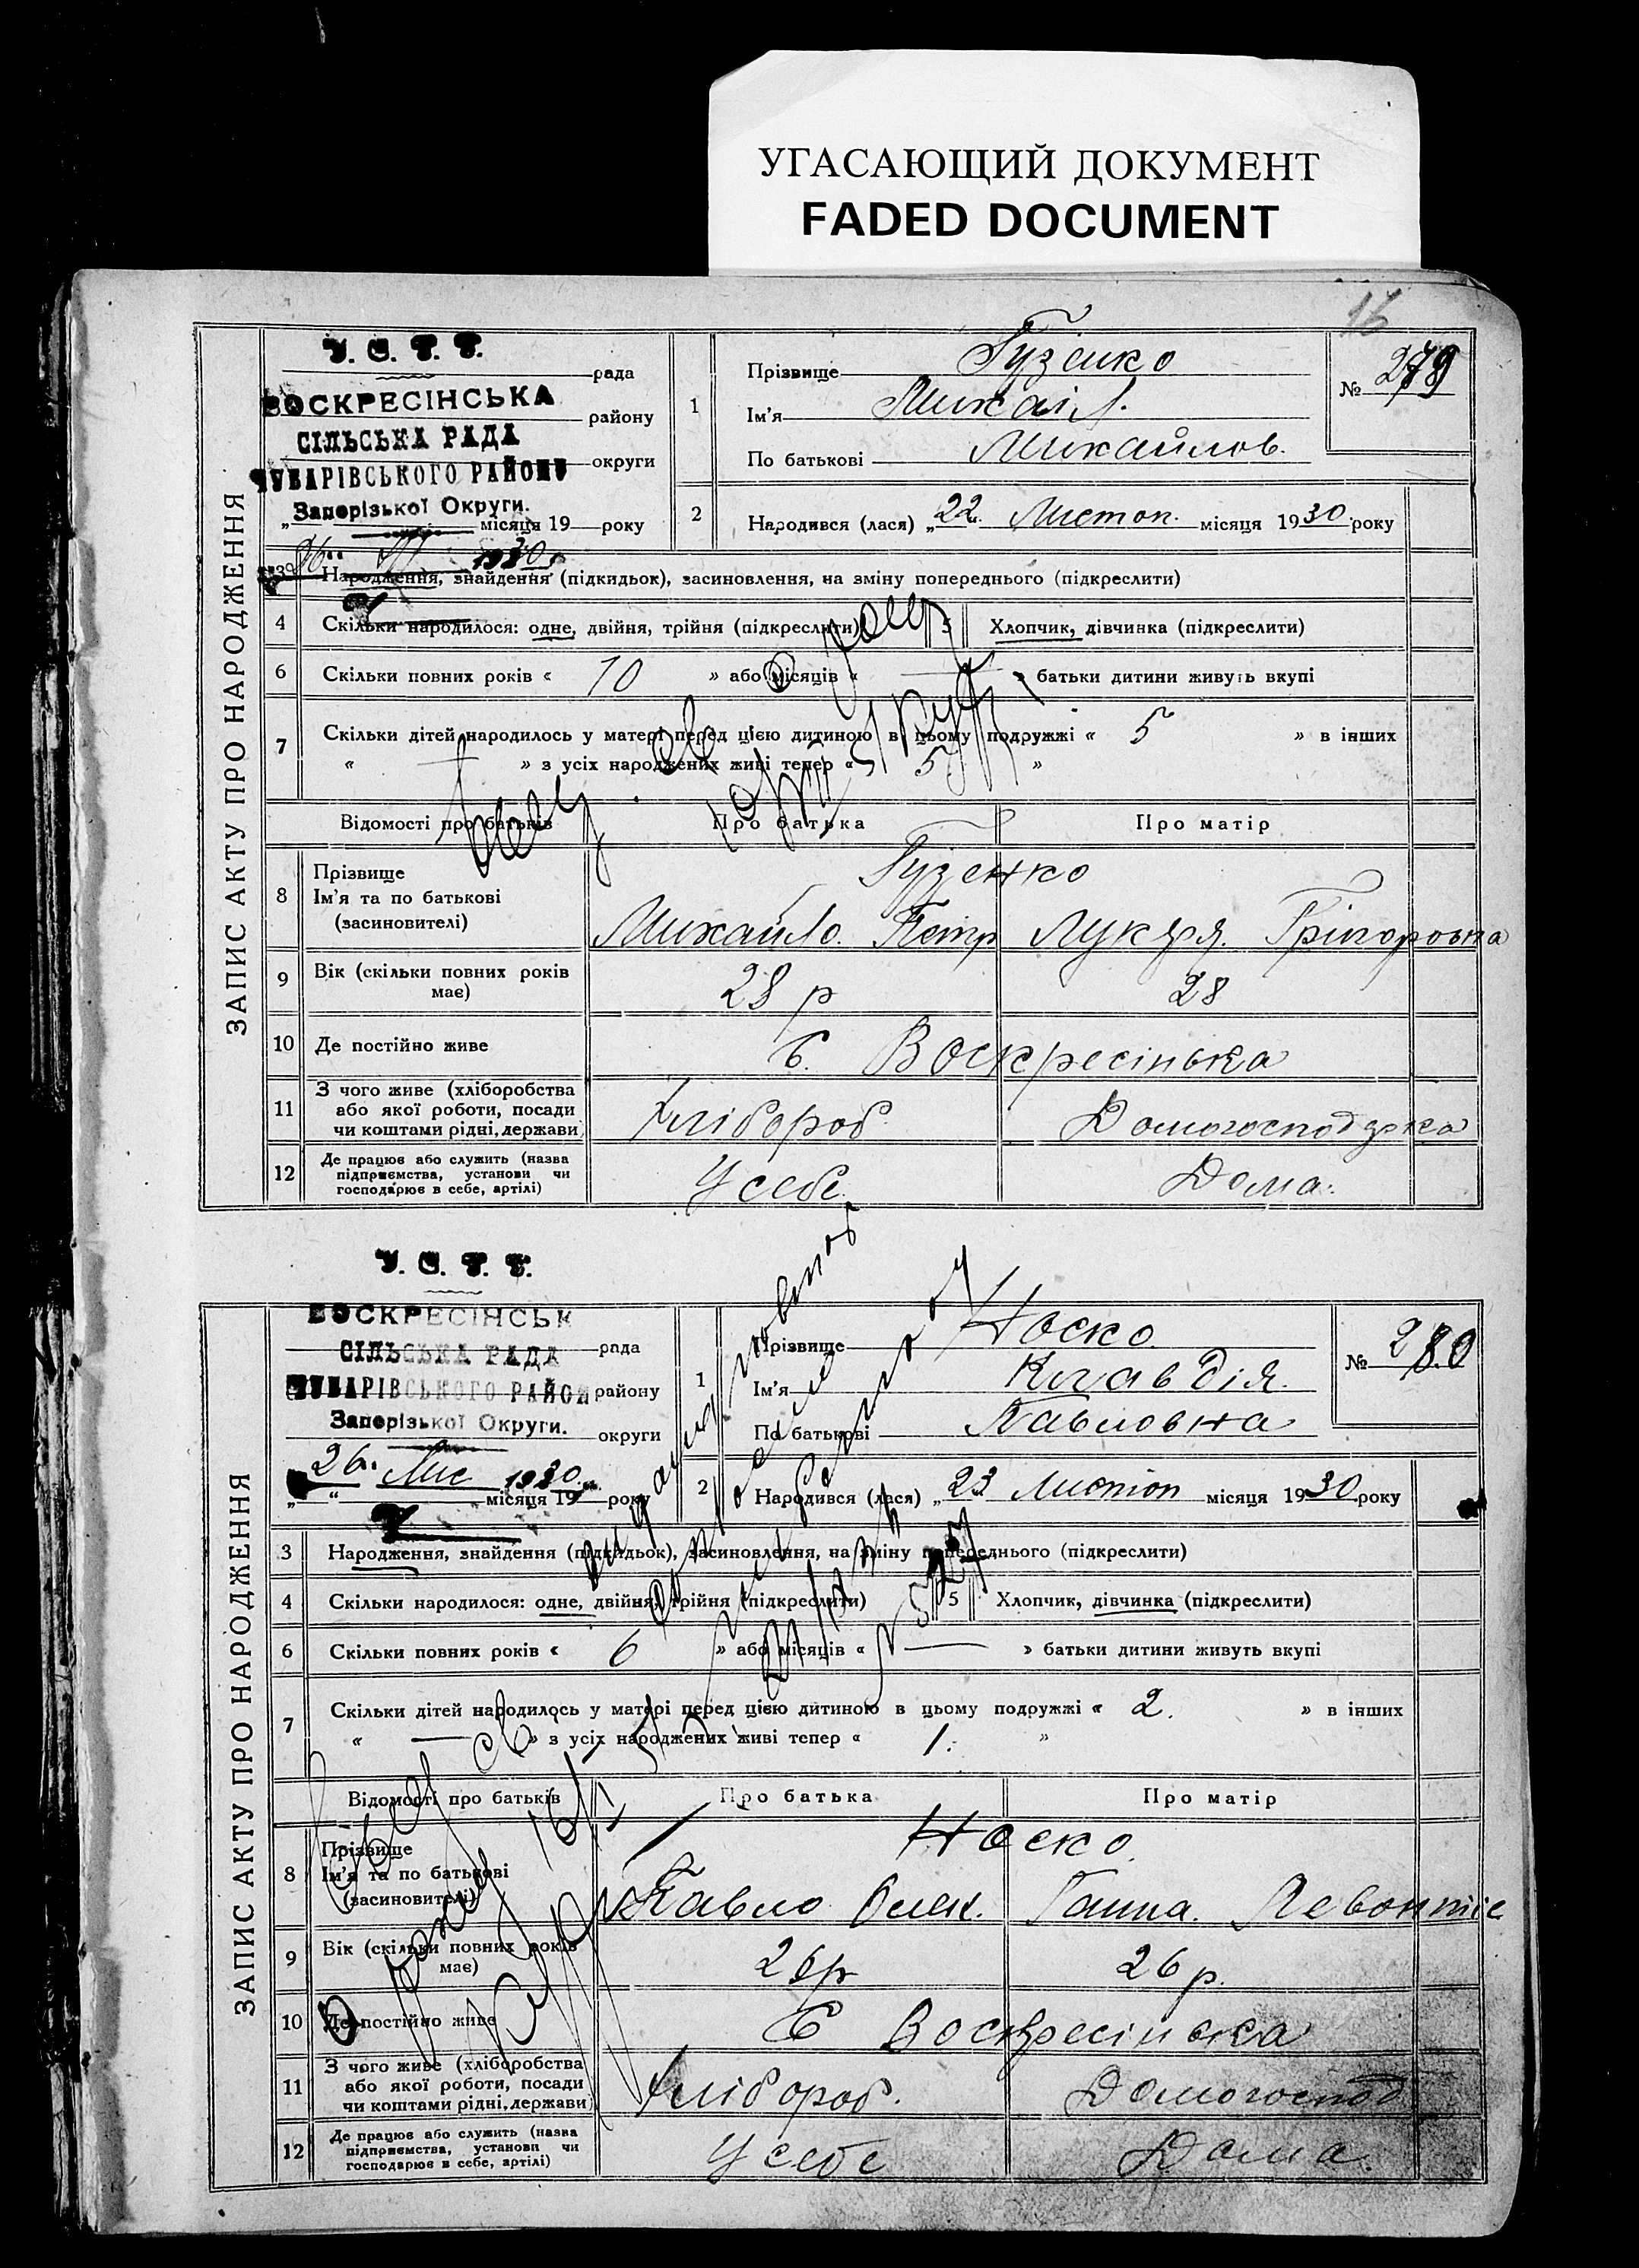 УГАСАЮЩИЙ ДОКУМЕНТ
FADED DOCUMENT
16
ЗАПИС АКТУ ПРО НАРОДЖЕННЯ
У. С. Р. Р.
рада
ВОСКРЕСІНСЬКА
району
СІЛЬСЬКА РАДА
округи
ЧУБАРІВСЬКОГО РАЙОНУ
Запорізької Округи.
„ місяця 19 року
26 1930
1 Прізвище Гузенко
Ім'я Михаіл.
По батькові Михайлов.
№ 279
2 Народився (лася) „22 Листоп. місяця 1930 року
3 Народження, знайдення (підкидьок), засиновлення, на зміну попереднього (підкреслити)
4 Скільки народилося: одне, двійня, трійня (підкреслити) 5 Хлопчик, дівчинка (підкреслити)
6 Скільки повних років « 10 » або місяців « — » батьки дитини живуть вкупі
7 Скільки дітей народилось у матері перед цією дитиною в цьому подружжі « 5 » в інших
« — » з усіх народжених живі тепер « 5 »
Відомості про батьків Про батька Про матір
8 Прізвище Гузенко
Ім'я та по батькові
(засновителі) Михайло. Петр Лукеря. Грігоровна
9 Вік (скільки повних років має) 28 р 28
10 Де постійно живе с. Воскресінька
11 З чого живе (хліборобства або якої роботи, посади чи коштами рідні, держави) Хлібороб Домогосподарка
12 Де працює або служить (назва підприємства, установи чи господарює в себе, артілі) У себе. Дома.
ЗАПИС АКТУ ПРО НАРОДЖЕННЯ
У. С. Р. Р.
ВОСКРЕСІНСЬК
рада
СІЛЬСЬКА РАДА
району
ЧУБАРІВСЬКОГО РАЙОН
Запорізької Округи.
округи
26. Лис 1930
„ “ місяця 19 року
1 Прізвище Носко.
Ім'я Клавдія.
По батькові Павловна
№ 280
2 Народився (лася) „23 Листоп місяця 1930 року
3 Народження, знайдення (підкидьок), засиновлення, на зміну попереднього (підкреслити)
4 Скільки народилося: одне, двійня, трійня (підкреслити) 5 Хлопчик, дівчинка (підкреслити)
6 Скільки повних років « 6 » або місяців « — » батьки дитини живуть вкупі
7 Скільки дітей народилось у матері перед цією дитиною в цьому подружжі « 2. » в інших
« — » з усіх народжених живі тепер « 1. »
Відомості про батьків Про батька Про матір
8 Прізвище Носко.
Ім'я та по батькові
(засиновителі) Павло Олек. Ганна. Левонтіє
9 Вік (скільки повних років має) 26р 26 р.
10 Де постійно живе С Воскресінька
11 З чого живе (хліборобства або якої роботи, посади чи коштами рідні, держави) Хлібороб. Домогоспод
12 Де працює або служить (назва підприємства, установи чи господарює в себе, артілі) У себе Дома.